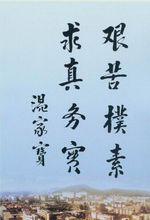 艰苦樸素
求真务實
温家寳